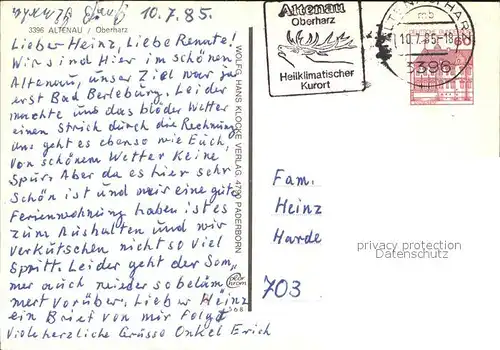 10.7.85.
3396 ALTENAU / Oberharz
Lieber Heinz, Liebe Renate!
Wir sind Hier im schönen
Altenau, unser Ziel war zu
erst Bad Berleburg. Leider
machte uns das blöde Wetter
einen Strich durch die Rechnung
uns geht es ebenso wie Euch,
von schönem Wetter keine
Spur. Aber da es hier sehr
Schön ist und wir eine gute
Ferienwohnung haben ist es
zum Aushalten und wir
verkutschen nicht so viel
Spritt. Leider geht der Som,
mer auch wieder so beläm,
mert vorüber, Lieber Heinz
ein Brief von mir folgt
Viele herzliche Grüsse Onkel Erich
WOLFG. HANS KLOCKE VERLAG, 4790 PADERBORN
Altenau
Oberharz
Heilklimatischer
Kurort
ALTENAU, HARZ
mb
10.7.85-18
3396
60
Fam.
Heinz
Harde
703
privacy protection
Datenschutz